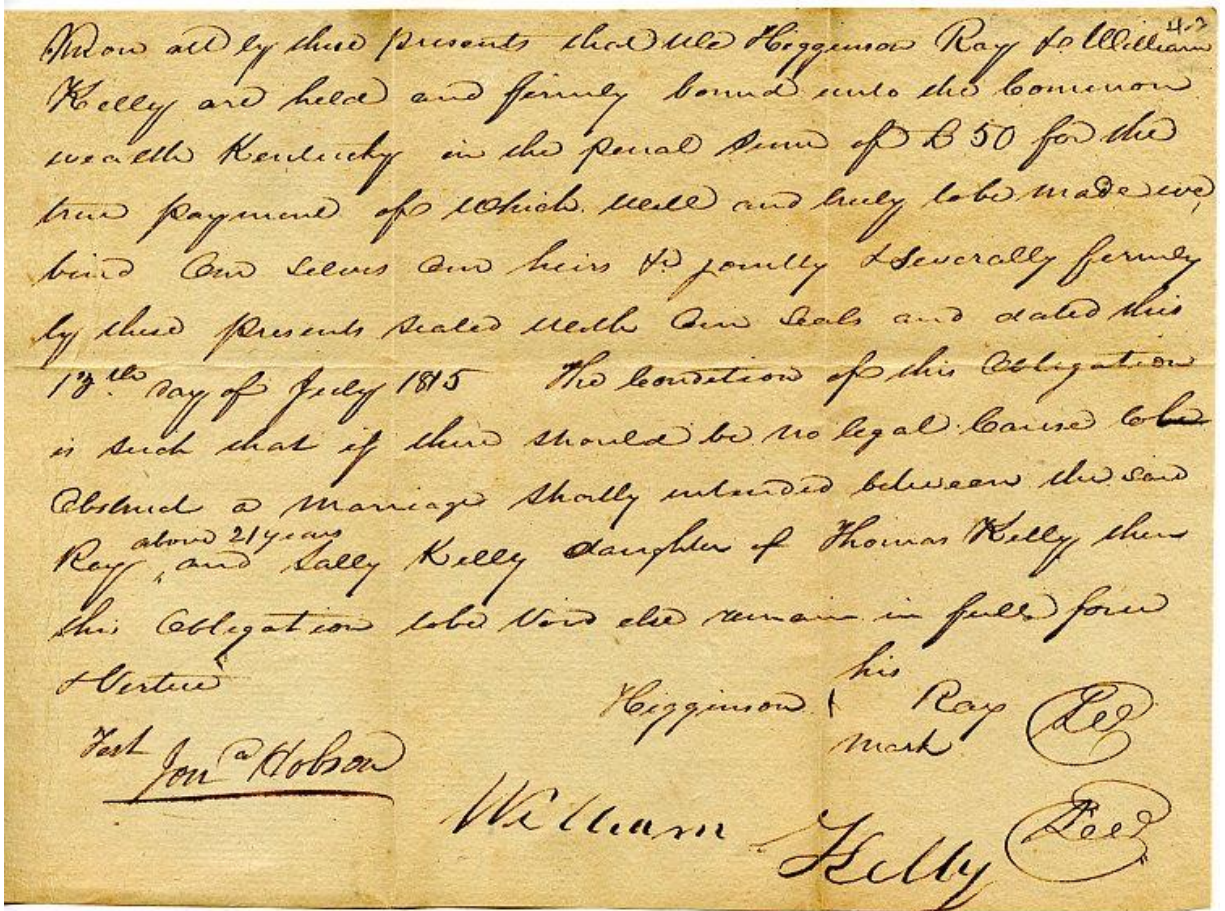 4-3
Know all by these presents that We Higginson Ray & William
Kelly are held and firmly bound unto the Common
wealth Kentucky in the penal sum of £ 50 for the
true payment of which well and truly to be made we
bind Our selves Our heirs &c jointly & severally firmly
by these presents sealed with Our Seals and dated this
13th day of July 1815 The Condition of this Obligation
is such that if there should be no legal Cause to be
Obstruct a Marriage Shortly intended between the said
above 21 years
Ray, and Sally Kelly daughter of Thomas Kelly then
this Obligation to be Void else remain in full force
& Vertue
his
Higginson Ray Seal
mark
Test
Jona Hobson
William Kelly Seal